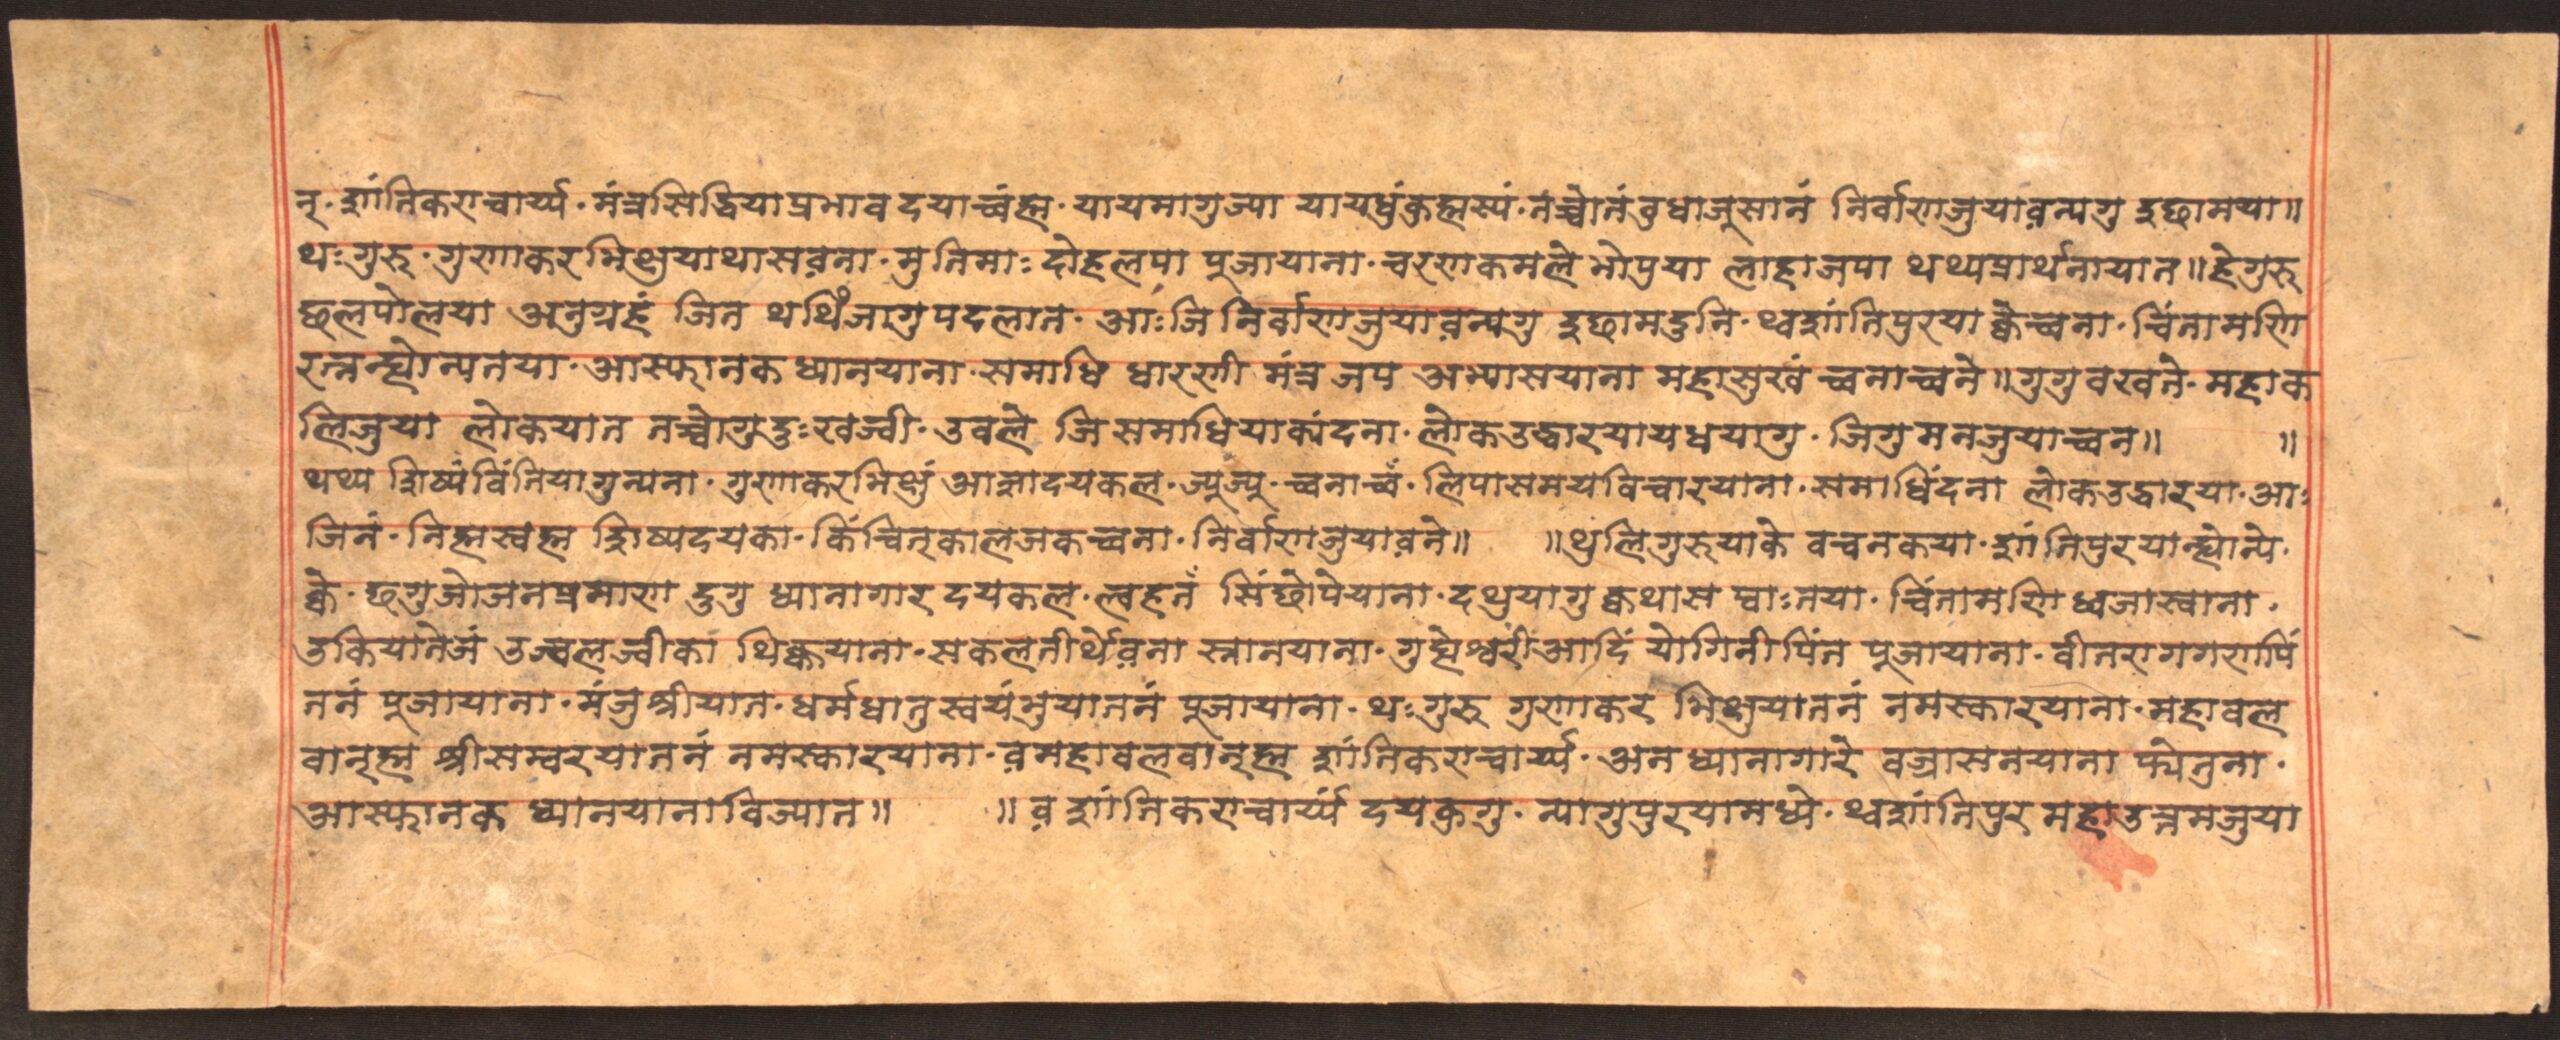 न्· शांतिकराचार्य्य· मंत्रसिद्धियाप्रभाव दयाच्वंह्म· यायमागुज्या यायधुंकुह्मस्यं· नच्वोनंवुधाजुसानं निर्वाणजुयाव़न्यगु इछामया॥
थः गुरु· गुणाकरभिक्षुयाथासव़ना· मुतिमाः दोहलपा पुजायाना· चरणकमले भोपुया लाहाजपा थथ्यप्रार्थनायात॥ हेगुरु
छलपोलया अनुग्रहं जित थथिंजागुपदलात· आः जि निर्वाणजुयाव़न्यगु इछामदुनि· थ्वशांतिपुरया क्वेच्वना· चिंतामणि
रत्नन्ह्योन्यतया· आस्फानक ध्यानयाना· समाधि धारणी मंत्र जप अभ्यासयाना महासुखं च्वनाच्वने॥ गुगुवखते· महाक
लिजुया लोकयात नच्वोगुदुःखज्वी· उवले जि समाधियाकांदना· लोकउद्धारयायधयागु· जिगुमनजुयाच्वन॥ ॥
थथ्य शिष्यंविंतियागुन्यना· गुणाकरभिक्षुं आज्ञादयकल· ज्युज्यु· च्वनाच्वँ· लिपासमयविचारयाना· समाधिंदना लोकउद्धारया· आः
जिनं· निह्मस्वह्म शिष्यदयका· किंचित्कालजकच्वना· निर्वाणजुयाव़ने॥ ॥ थुलिगुरुयाके वचनकया· शांतिपुरयान्ह्योन्ये·
क्वे· छगुजोजनप्रमाण दुगु ध्यानागार दयकल· ल्वहनँ सिंछोपेयाना· दथुयागु क्वथास प्वाः तया· चिंतामणि ध्वजास्वाना·
उकियातेजं उज्वलज्वीका थिक्कयाना· सकलतीर्थेव़ना स्नानयाना· गुह्येश्वरीआदिं योगिनीपिंत पुजायाना· वीतरागगणपिं
तनं पुजायाना· मंजुश्रीयात· धर्मधातुस्वयंभुयातनं पुजायाना· थः गुरु गुणाकर भिक्षुयातनं नमस्कारयाना· महावल
वान्ह्म श्रीसम्वरयातनं नमस्कारयाना· व़महावलवान्ह्म शांतिकराचार्य्य· अन ध्यानागारे वज्रासनयाना फ्येतुना·
आस्फानक ध्यानयानाविज्यात॥ ॥ व़ शांतिकराचार्य्यं दयकुगु· न्यागुपुरयामध्ये· थ्वशांतिपुर महाउत्तमजुया